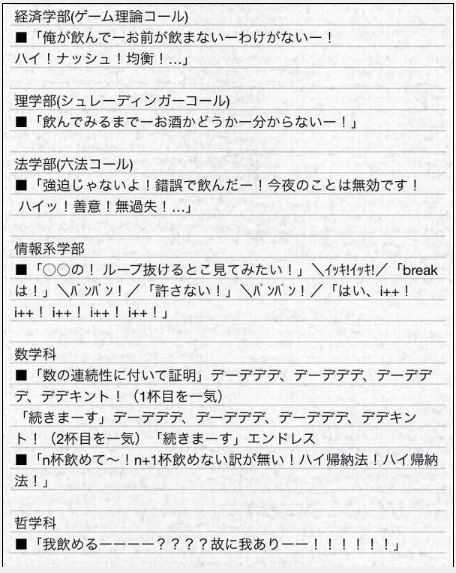 経済学部(ゲーム理論コール)
■「俺が飲んでーお前が飲まないーわけがないー！
ハイ！ナッシュ！均衡！…」
理学部(シュレーディンガーコール)
■「飲んでみるまでーお酒かどうかー分からないー！」
法学部(六法コール)
■「強迫じゃないよ！錯誤で飲んだー！今夜のことは無効です！
ハイッ！善意！無過失！…」
情報系学部
■「○○の！ ループ抜けるとこ見てみたい！」＼ｲｯｷ!ｲｯｷ!／「break
は！」＼ﾊﾞﾝﾊﾞﾝ！／「許さない！」＼ﾊﾞﾝﾊﾞﾝ！／「はい、i++！
i++！ i++！ i++！ i++！」
数学科
■「数の連続性に付いて証明」デーデデデ、デーデデデ、デーデデ
デ、デデキント！（1杯目を一気）
「続きまーす」デーデデデ、デーデデデ、デーデデデ、デデキン
ト！（2杯目を一気）「続きまーす」エンドレス
■「n杯飲めて〜！n+1杯飲めない訳が無い！ハイ帰納法！ハイ帰納
法！」
哲学科
■「我飲めるーーーー？？？？故に我ありーー！！！！！！」